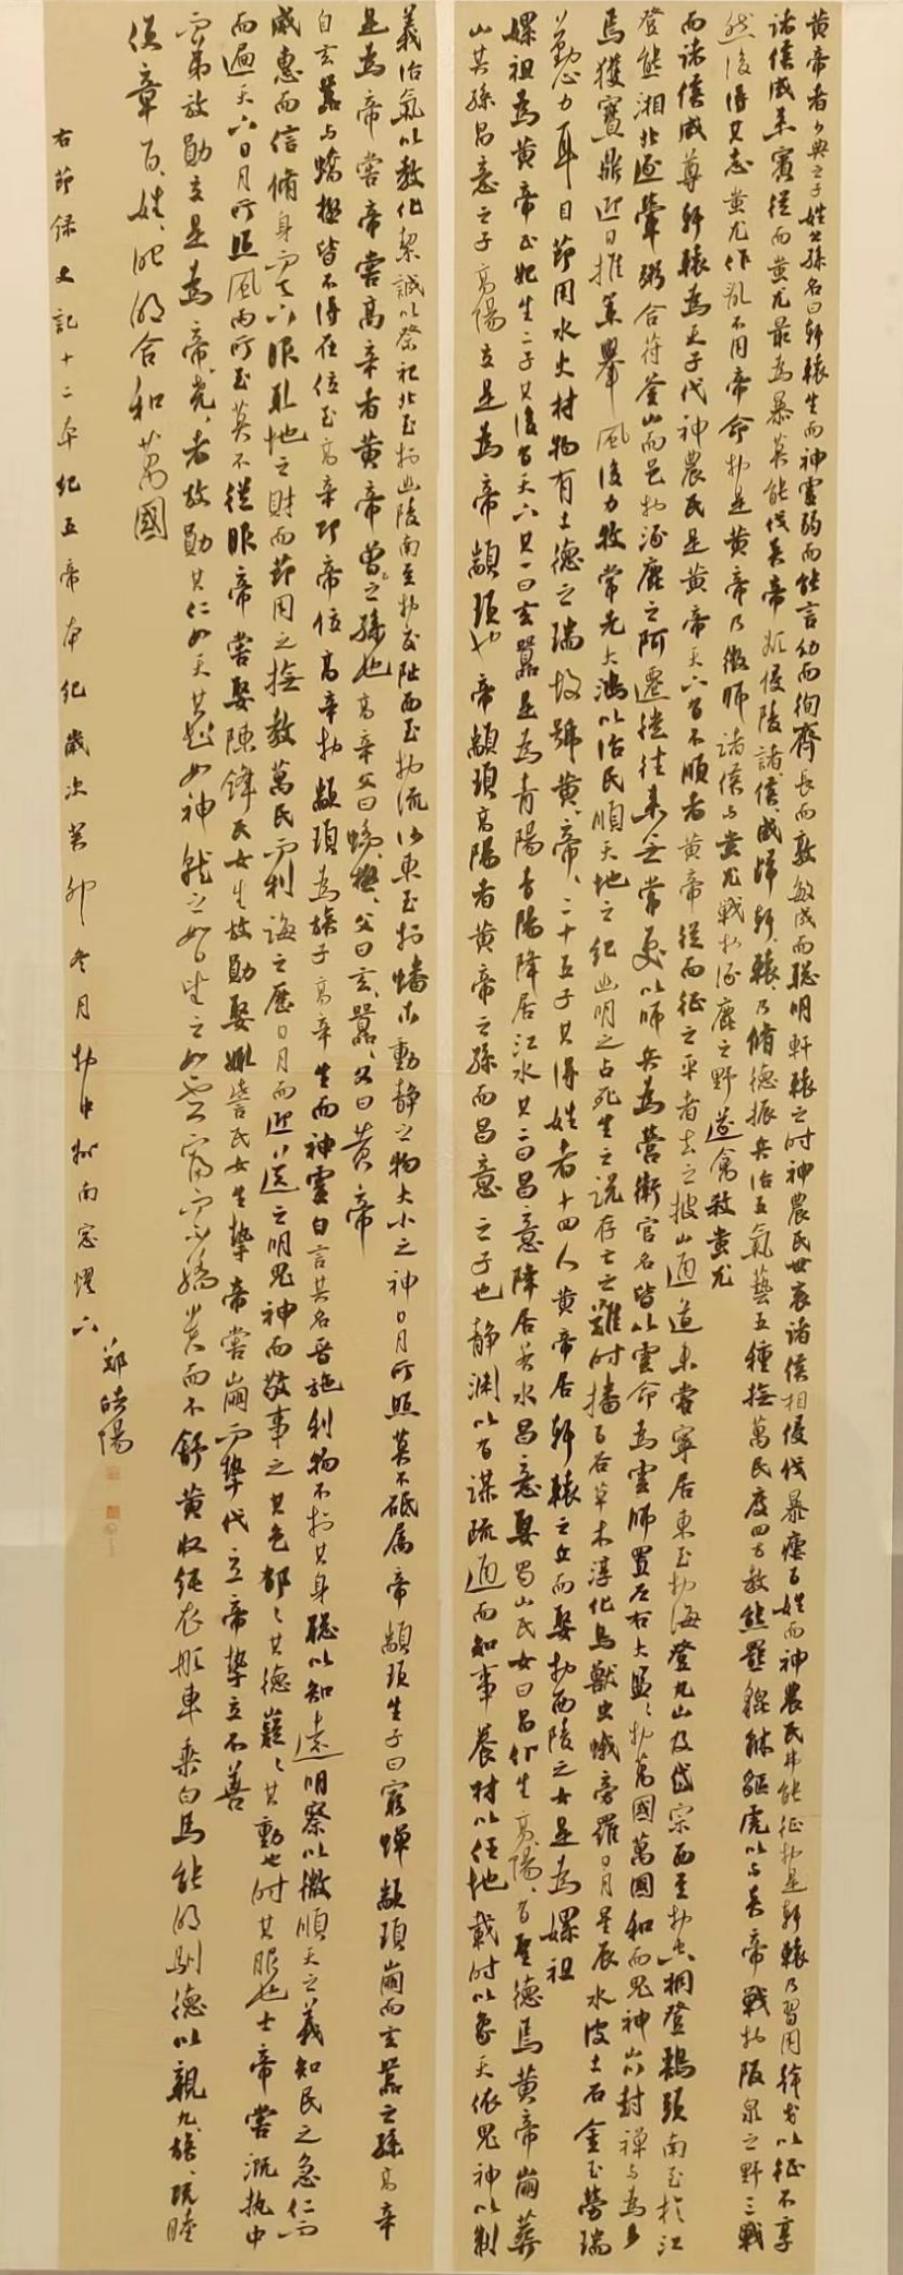 黄帝者少典之子姓公孫名曰軒轅生而神靈弱而能言幼而徇齊長而敦敏成而聰明軒轅之时神農氏世衰諸侯相侵伐暴虐百姓而神農氏弗能征於是軒轅乃習用干戈以征不享
諸侯咸来賓從而蚩尤最為暴莫能伐炎帝欲侵陵諸侯、咸歸軒、轅、乃修德振兵治五氣藝五種撫萬民度四方教熊羆貔貅貙虎以与炎帝戰於阪泉之野三戰
然後得其志蚩尤作亂不用帝命於是黄帝乃徵師諸侯与蚩尤戰於涿鹿之野遂禽殺蚩尤
而諸侯咸尊軒轅為天子代神農氏是黄帝天下有不順者黄帝從而征之平者去之披山通道未嘗寧居東至於海登丸山及岱宗西至於空桐登鷄頭南至於江
登熊湘北逐葷粥合符釜山而邑於涿鹿之阿遷徙往来無常處以師兵為營衛官名皆以雲命為雲師置左右大監、於萬國萬國和而鬼神山封禅与為多
焉獲寶鼎迎日推策舉風後力牧常先大鴻以治民順天地之紀幽明之占死生之說存亡之難时播百谷草木淳化鳥獸虫蛾旁羅日月星辰水波土石金玉勞瑞
勤心力耳目節用水火材物有土德之瑞故號黄、帝、二十五子其得姓者十四人黄帝居軒轅之丘而娶於西陵之女是為嫘祖
嫘祖為黄帝正妃生二子其後有天下其一曰玄囂是為青陽青陽降居江水其二曰昌意降居若水昌意娶蜀山氏女曰昌仆生高陽、有聖德焉黄帝崩葬
山其孫昌意之子高陽立是為帝顓頊也帝顓頊高陽者黄帝之孫而昌意之子也静渊以有謀疏通而知事養材以任地載时以象天依鬼神以制
義治氣以教化絜誠以祭祀北至於幽陵南至於交阯西至於流沙東至於蟠木動静之物大小之神日月所照莫不砥属帝顓頊生子曰窮蟬顓頊崩而玄囂之孫高辛
是為帝嚳帝嚳高辛者黄帝曾之孫也高辛父曰蟜、極、父曰玄、囂、父曰黄帝
自玄囂与蟜極皆不得在位至高辛即帝位高辛於顓頊為族子高辛生而神靈自言其名普施利物不於其身聰以知遠明察以微順天之義知民之急仁而
威惠而信修身而天下服取地之財而節用之撫教萬民而利誨之歷日月而迎以送之明鬼神而敬事之其色郁、其德嶷、其動也时其服也士帝嚳溉执中
而遍天下日月所照風雨所至莫不從服帝嚳娶陳鋒氏女生放勋娶娵訾氏女生摯帝嚳崩而摯代立帝摯立不善
而弟放勋立是為帝尧、者放勋其仁如天其知如神就之如日望之如雲富而不驕贵而不舒黄收純衣彤車乘白馬能明馴德以親九族、既睦
便章百、姓、昭明合和萬國
右節録史記十二本纪五帝本纪歲次癸卯冬月於中州南窓燈下
郑皓陽